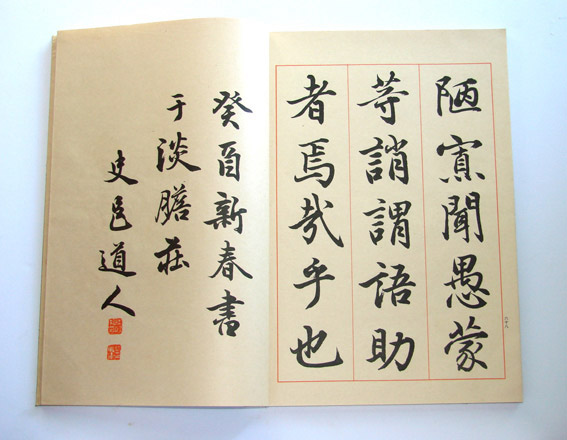 陋寡聞愚蒙
等誚謂語助
者焉哉乎也
癸酉新春書
于淡荘
史邑道人